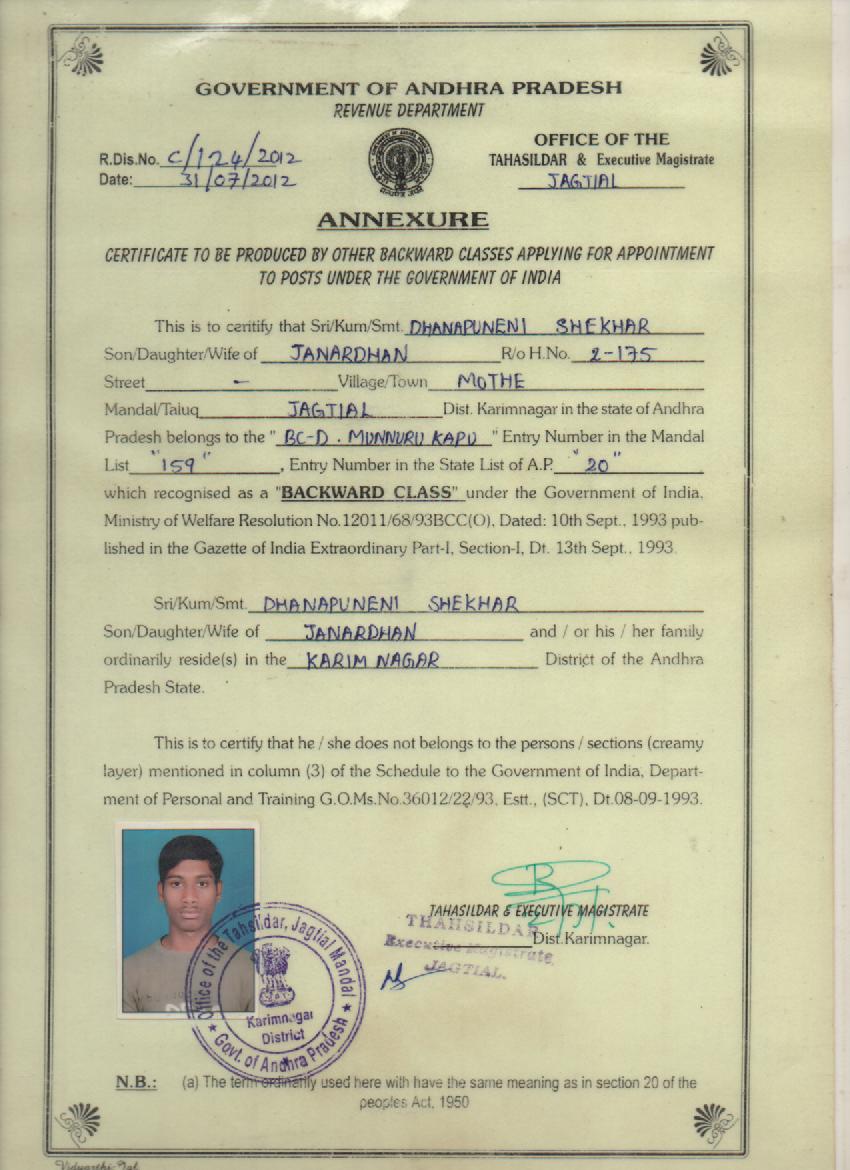 GOVERNMENT OF ANDHRA PRADESH
REVENUE DEPARTMENT
R.Dis.No. C/124/2012
Date: 31/07/2012
OFFICE OF THE
TAHASILDAR & Executive Magistrate
JAGTIAL
ANNEXURE
CERTIFICATE TO BE PRODUCED BY OTHER BACKWARD CLASSES APPLYING FOR APPOINTMENT
TO POSTS UNDER THE GOVERNMENT OF INDIA
This is to certify that Sri/Kum/Smt. DHANAPUNENI SHEKHAR
Son/Daughter/Wife of JANARDHAN R/o H.No. 2-175
Street - Village/Town MOTHE
Mandal/Taluq JAGTIAL Dist. Karimnagar in the state of Andhra
Pradesh belongs to the " BC-D . MUNNURU KAPU " Entry Number in the Mandal
List "159" , Entry Number in the State List of A.P. "20"
which recognised as a "BACKWARD CLASS" under the Government of India,
Ministry of Welfare Resolution No.12011/68/93BCC(O), Dated: 10th Sept., 1993 pub-
lished in the Gazette of India Extraordinary Part-I, Section-I, Dt. 13th Sept., 1993.
Sri/Kum/Smt. DHANAPUNENI SHEKHAR
Son/Daughter/Wife of JANARDHAN and / or his / her family
ordinarily reside(s) in the KARIM NAGAR District of the Andhra
Pradesh State.
This is to certify that he / she does not belongs to the persons / sections (creamy
layer) mentioned in column (3) of the Schedule to the Government of India, Depart-
ment of Personal and Training G.O.Ms.No.36012/22/93, Estt., (SCT), Dt.08-09-1993.
TAHASILDAR & EXECUTIVE MAGISTRATE
THAHSILDAR
Dist.Karimnagar.
Executive Magistrate
JAGTIAL.
Office of the Tahsildar, Jagtial Mandal
Karimnagar
District
★ Govt. of Andhra Pradesh ★
N.B.: (a) The term ordinarily used here with have the same meaning as in section 20 of the
peoples Act, 1950